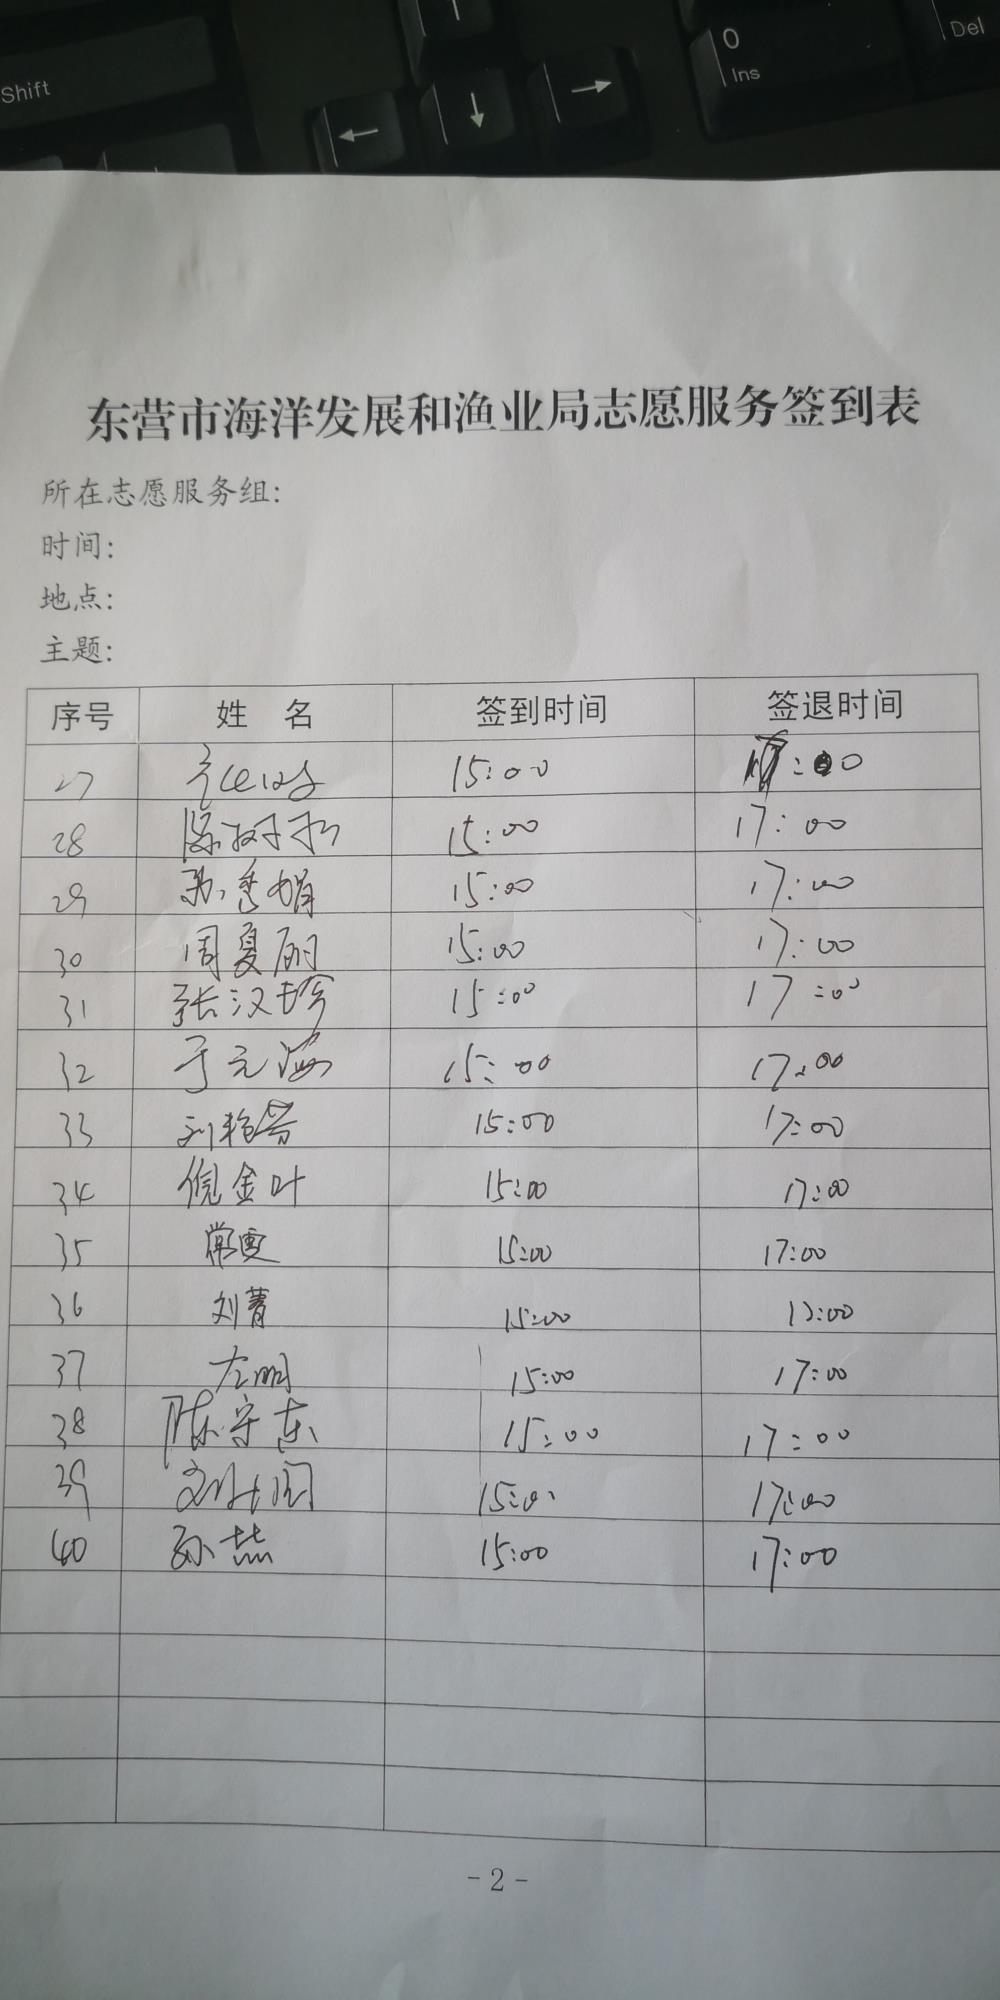 Shift
0
Ins
Del
东营市海洋发展和渔业局志愿服务签到表
所在志愿服务组:
时间:
地点:
主题:
序号 姓 名 签到时间 签退时间
27 15:00 :00
28 15:00 17:00
29 苏秀娟 15:00 17:00
30 周夏丽 15:00 17:00
31 张汉珍 15:00 17:00
32 于元海 15:00 17:00
33 刘艳芳 15:00 17:00
34 倪金叶 15:00 17:00
35 常雯 15:00 17:00
36 刘菁 15:00 17:00
37 左明 15:00 17:00
38 陈守东 15:00 17:00
39 15:00 17:00
40 孙燕 15:00 17:00
- 2 -